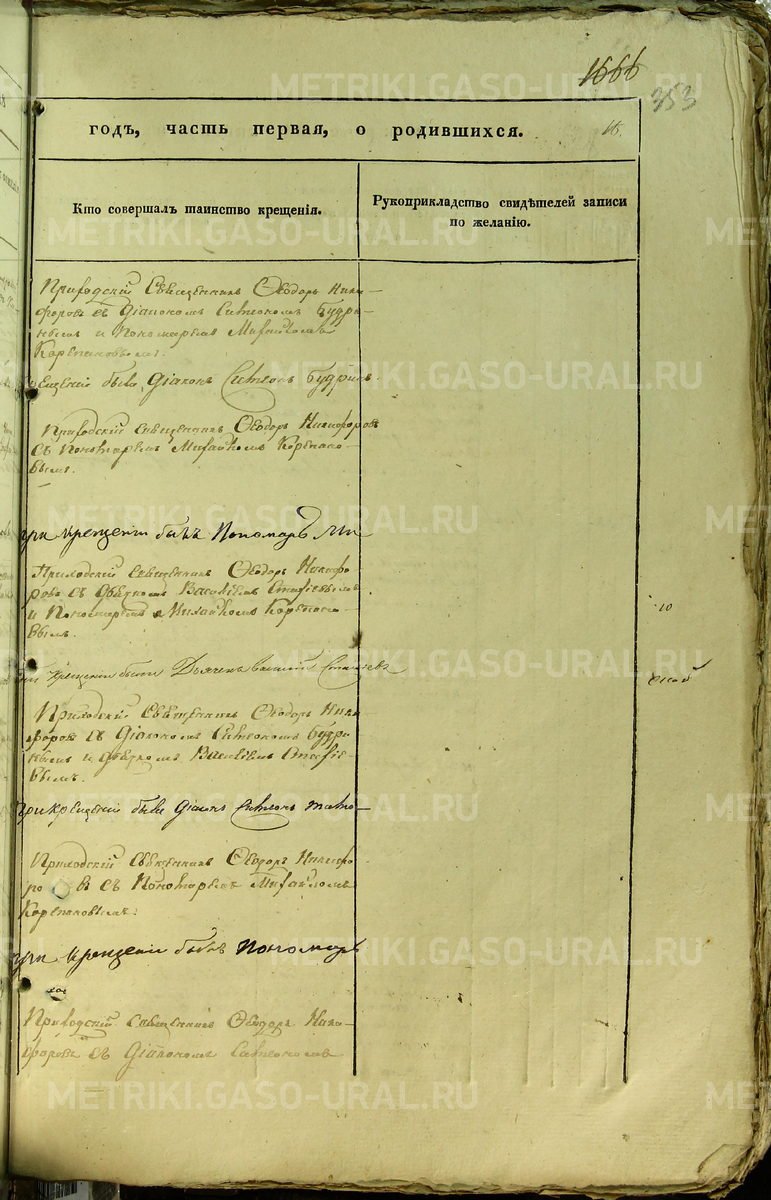 1666
353
годъ, часть первая, о родившихся.
16.
Кто совершалъ таинство крещенія.
Рукоприкладство свидѣтелей записи
по желанію.
Приходскій Священникъ Ѳеодоръ Ники-
форовъ съ Діакономъ Симеономъ Будри-
нымъ и Пономаремъ Михайломъ
Корепановымъ.
былъ Діаконъ Симеонъ Будринъ.
Приходскій Священникъ Ѳеодоръ Никифоровъ
съ Пономаремъ Михайломъ Корепано-
вымъ.
при крещеніи былъ Пономарь Ми
Приходскій Священникъ Ѳеодоръ Никифо
ровъ съ Дьячкомъ Василіемъ
и Пономаремъ Михайломъ Корепано-
вымъ.
10
крещеніи былъ Дьячекъ Василій
Приходскій Священникъ Ѳеодоръ Ники
форовъ съ Діакономъ Симеономъ Будри
нымъ и Дьячкомъ Василіемъ
вымъ.
при Крещеніи былъ Діаконъ Симеонъ
Приходскій Священникъ Ѳеодоръ Никифо
ровъ съ Пономаремъ Михайломъ
Корепановымъ.
при крещеніи былъ пономарь
Приходскій Священникъ Ѳеодоръ Ники-
форовъ съ Діакономъ Симеономъ
METRIKI.GASO-URAL.RU